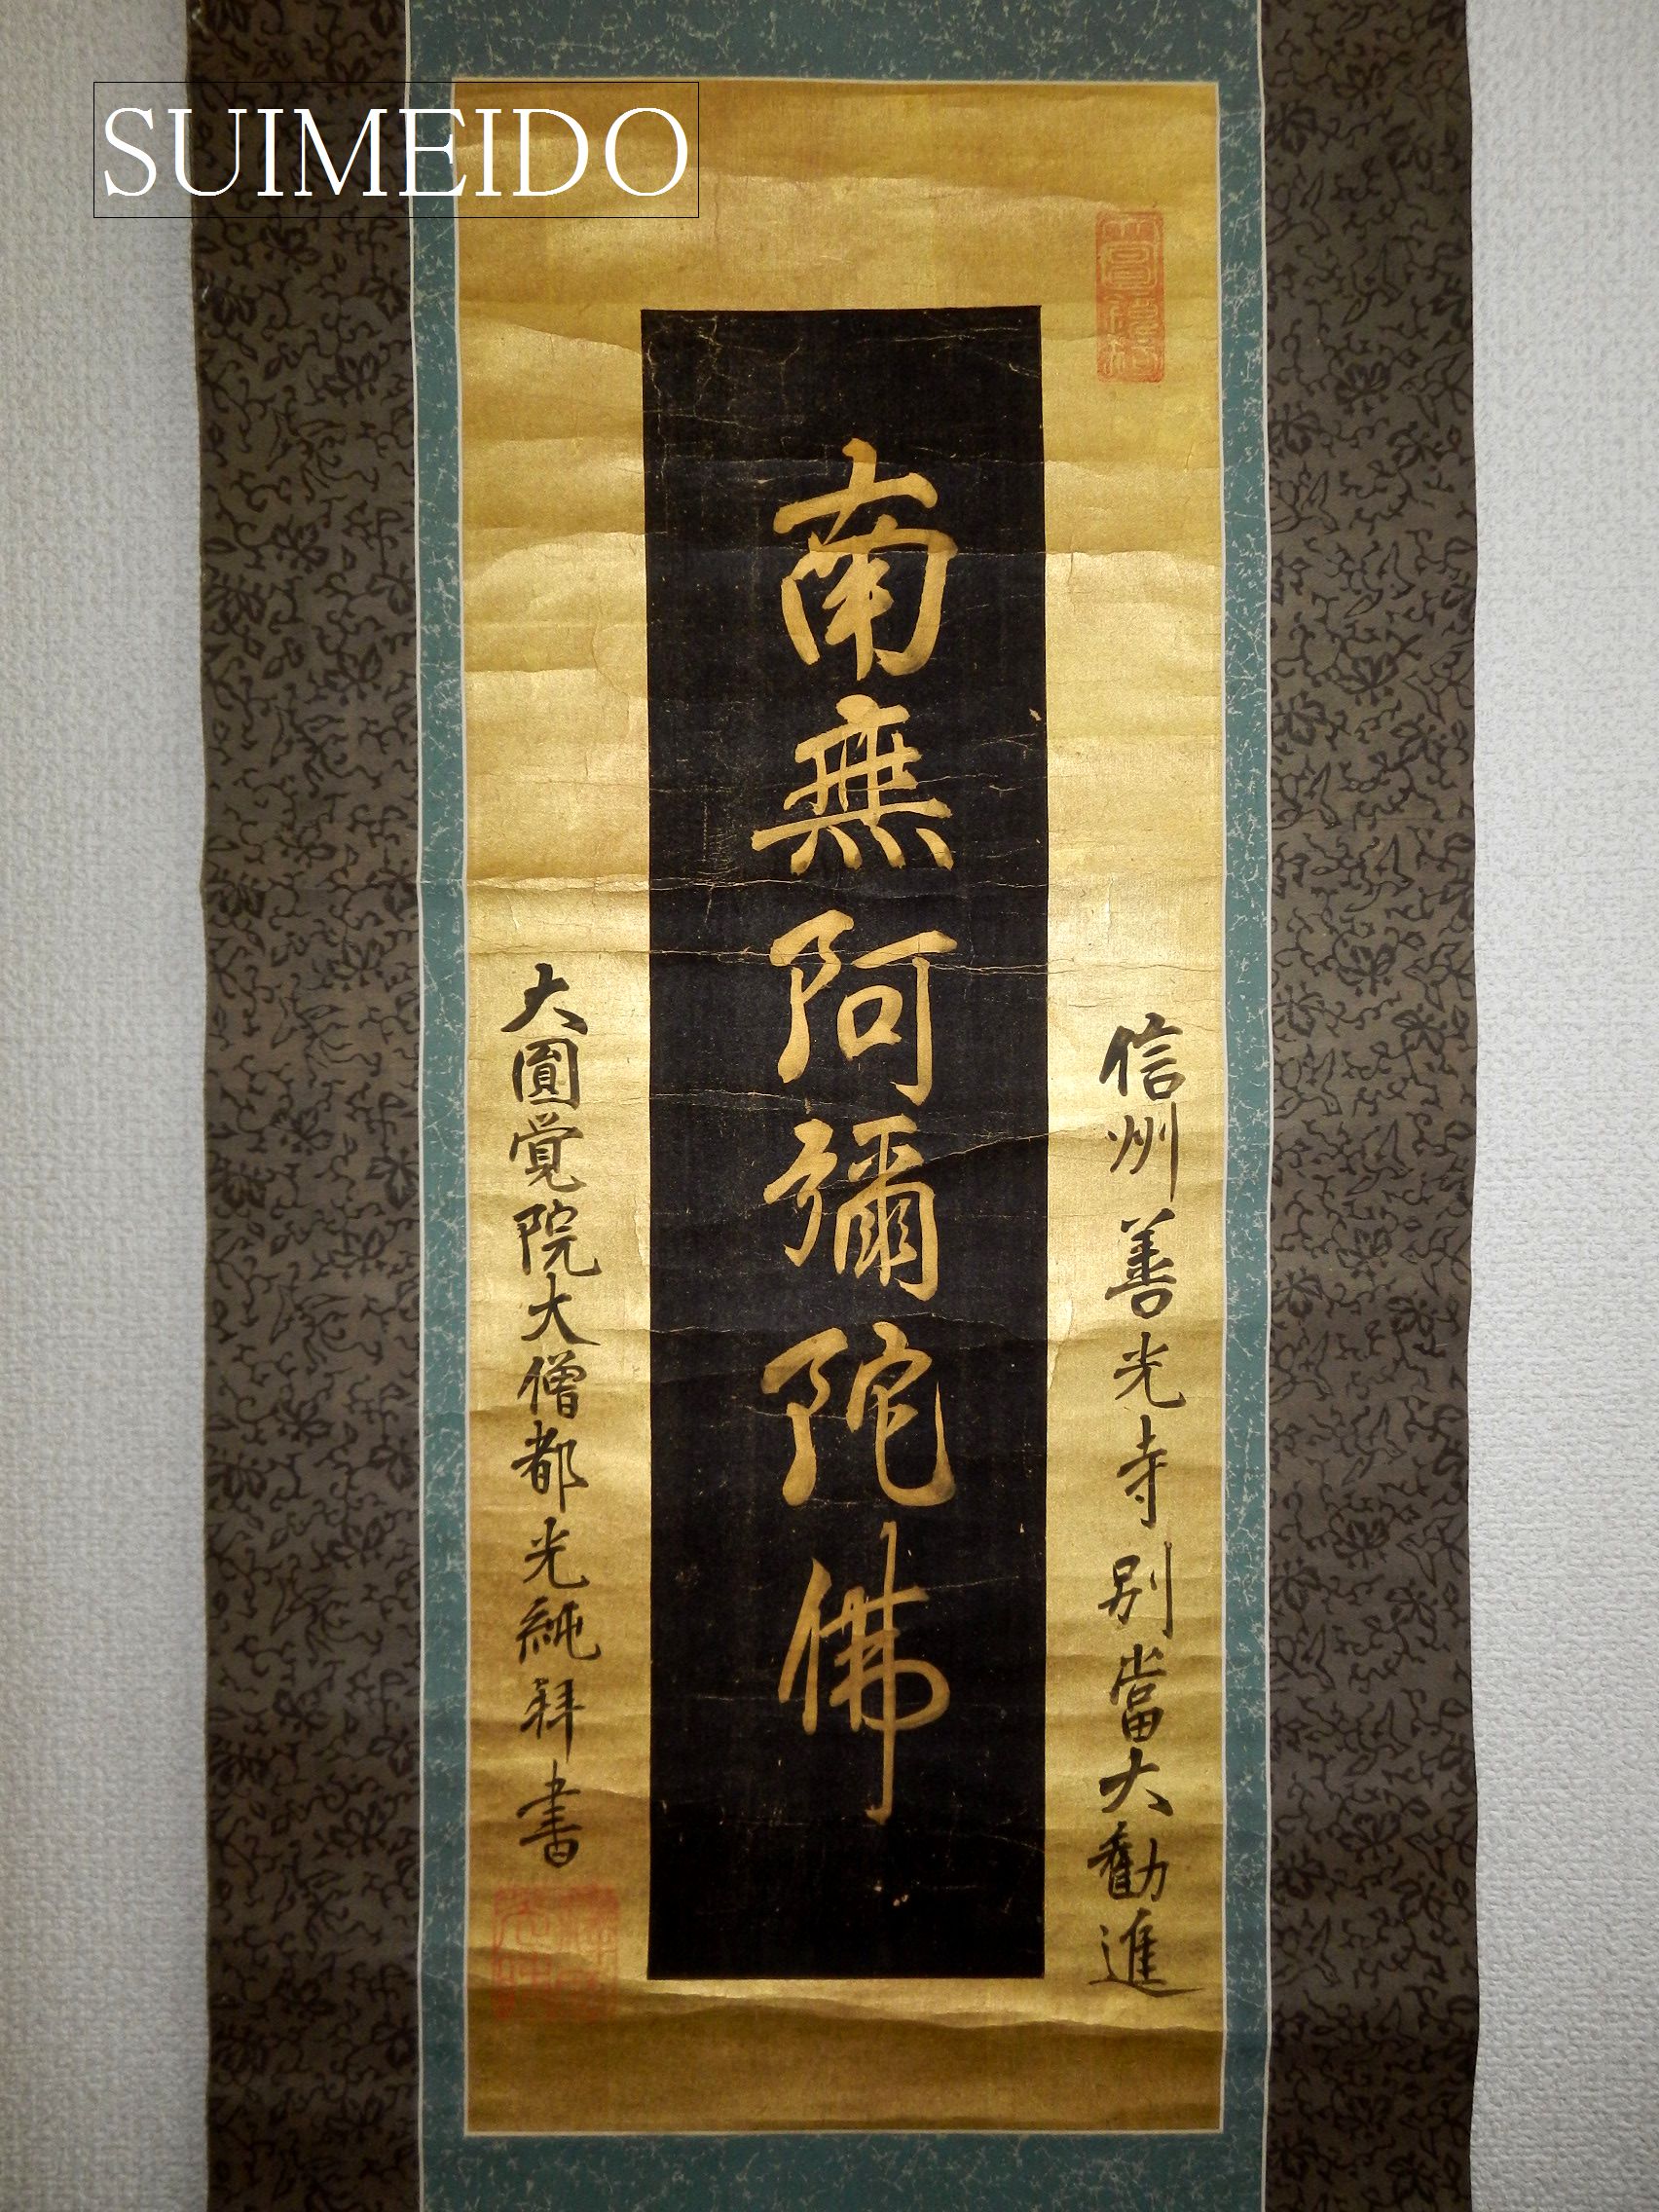 SUIMEIDO
信州善光寺別當大勸進
南無阿彌陀佛
大圓覚院大僧都光純拜書